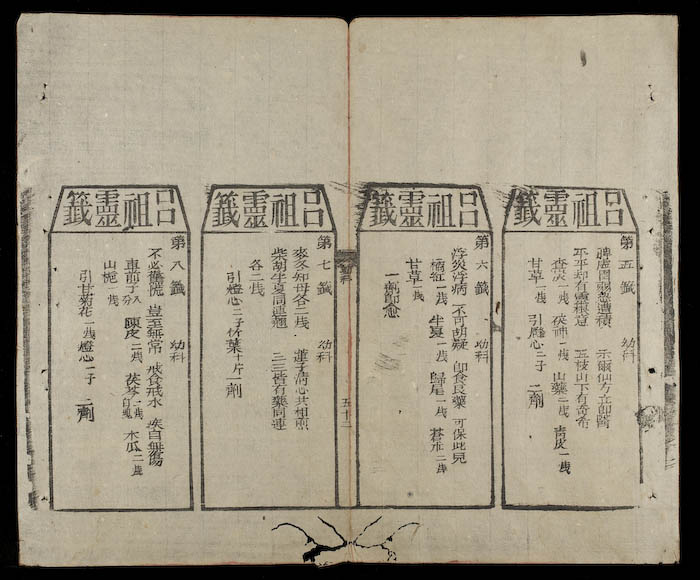 呂祖靈籤
第五籤 幼科
脾虛因 遭積 示爾仙方立即
平平却有靈根意 五枝山下有奇希
查炭一錢 茯神一錢 山藥二錢 青皮一錢
甘草一錢 引燈心二子 二劑
呂祖靈籤
第六籤 幼科
浮炎浮病 不可胡疑 即食良藥 可保此兒
桔紅一錢 半夏一錢 歸尾一錢 蒼朮二錢
甘草一錢
一劑即愈
幼科
五十二
呂祖靈籤
第七籤 幼科
麥冬知母各二錢 蓮子清心共相煎
柴胡半夏同連翹 三三皆有藥同連
各二錢
引燈心二子竹葉十片 一劑
呂祖靈籤
第八籤 幼科
不必慌忙 豈至無常 戒食戒水 疾自無傷
車前子八分 陳皮二錢 茯苓一錢 木瓜二錢
山梔一錢
引甘菊花一錢燈心一子 二劑